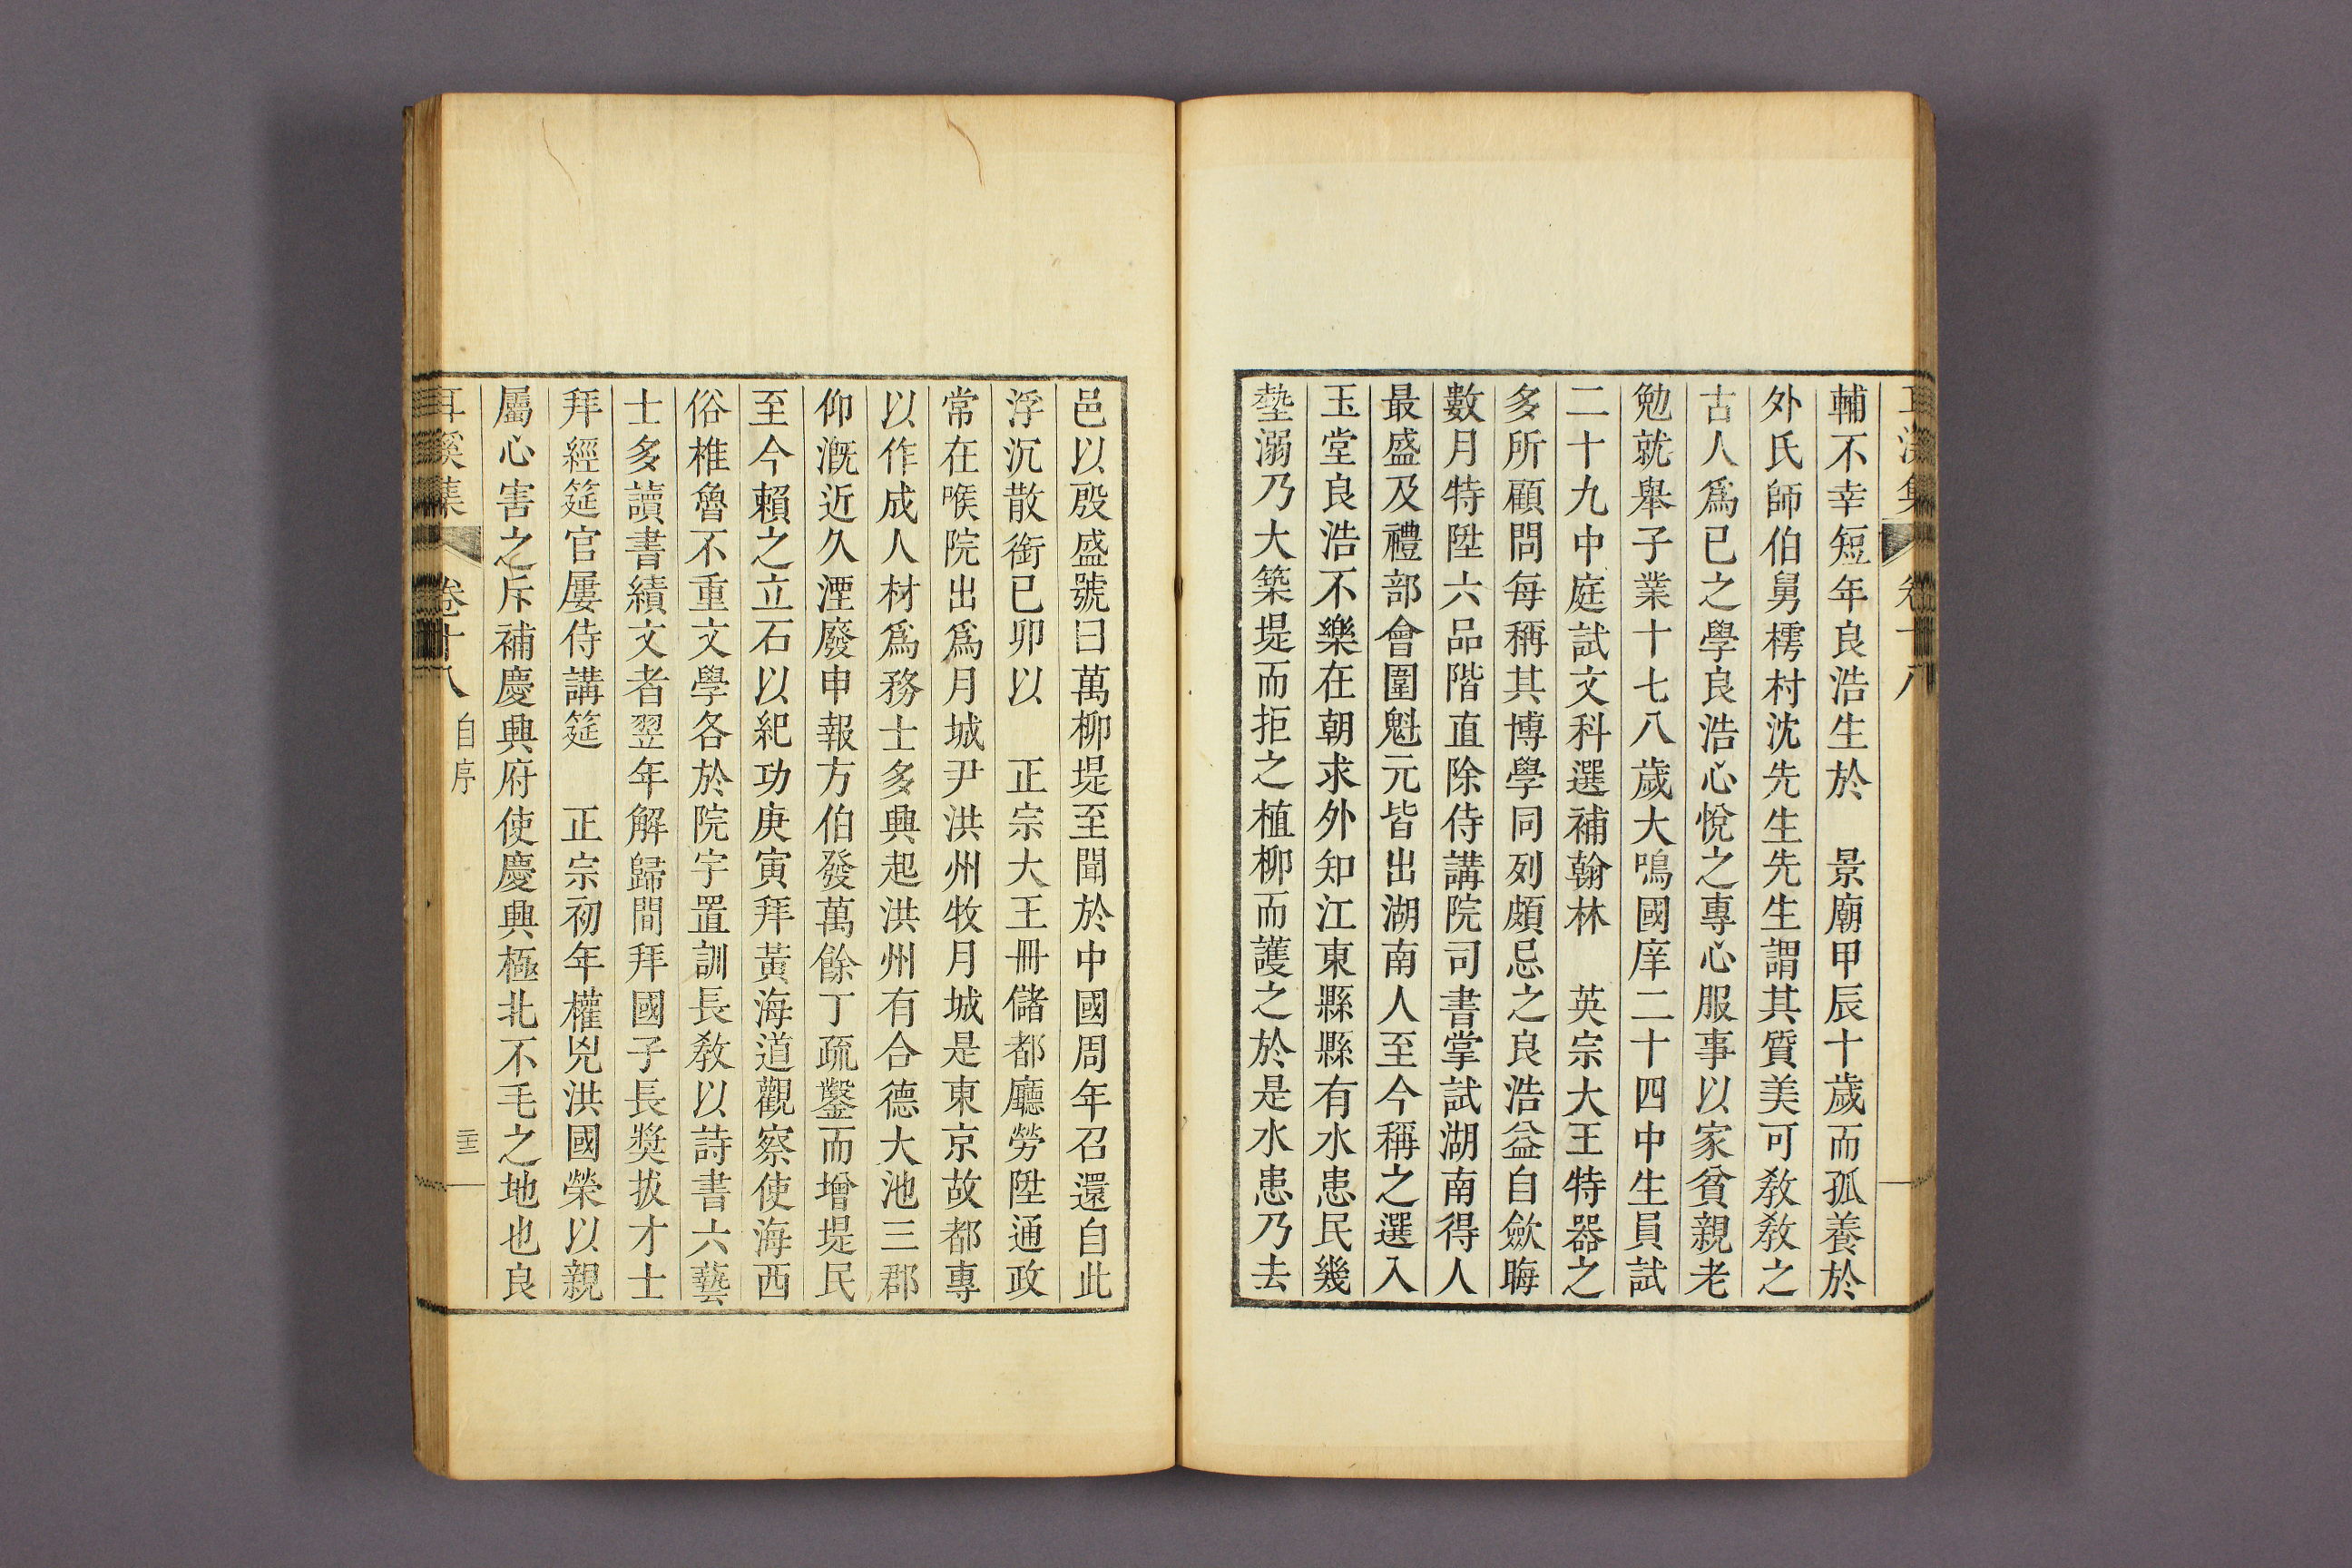 輔不幸短年良浩生於　景廟甲辰十歲而孤養於
外氏師伯舅樗村沈先生先生謂其質美可教教之
古人爲已之學良浩心悅之專心服事以家貧親老
勉就舉子業十七八歲大鳴國庠二十四中生員試
二十九中庭試文科選補翰林　英宗大王特器之
多所顧問每稱其博學同列頗忌之良浩益自斂晦
數月特陞六品階直除侍講院司書掌試湖南得人
最盛及禮部會圍魁元皆出湖南人至今稱之選入
玉堂良浩不樂在朝求外知江東縣縣有水患民幾
墊溺乃大築堤而拒之植柳而護之於是水患乃去
邑以殷盛號曰萬柳堤至聞於中國周年召還自此
浮沉散銜已卯以　正宗大王冊儲都廳勞陞通政
常在喉院出爲月城尹洪州牧月城是東京故都專
以作成人材爲務士多興起洪州有合德大池三郡
仰漑近久湮廢申報方伯發萬餘丁疏鑿而增堤民
至今賴之立石以紀功庚寅拜黃海道觀察使海西
俗椎魯不重文學各於院宇置訓長教以詩書六藝
士多讀書績文者翌年解歸間拜國子長獎拔才士
拜經筵官屢侍講筵　正宗初年權兇洪國榮以親
屬心害之斥補慶興府使慶興極北不毛之地也良
耳溪集　卷十八　自序　二十三